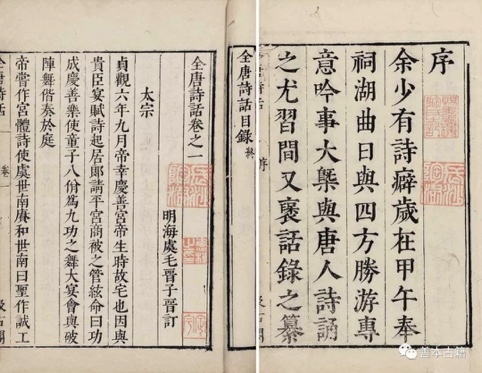 序
余少有詩癖歲在甲午奉
祠湖曲日與四方勝游專
意吟事大槩與唐人詩誦
之尤習間又裒話錄之纂
全唐詩話 序 汲古閣
全唐詩話目錄終
全唐詩話卷之一
明海虞毛晉子晉訂
太宗
貞觀六年九月帝幸慶善宮帝生時故宅也因與
貴臣宴賦詩起居郎請平宮商被之管絃命曰功
成慶善樂使童子八佾為九功之舞大宴會與破
陣舞偕奏於庭
帝嘗作宮體詩使虞世南賡和世南曰聖作誠工
全唐詩話 卷一 汲古閣
善本古籍